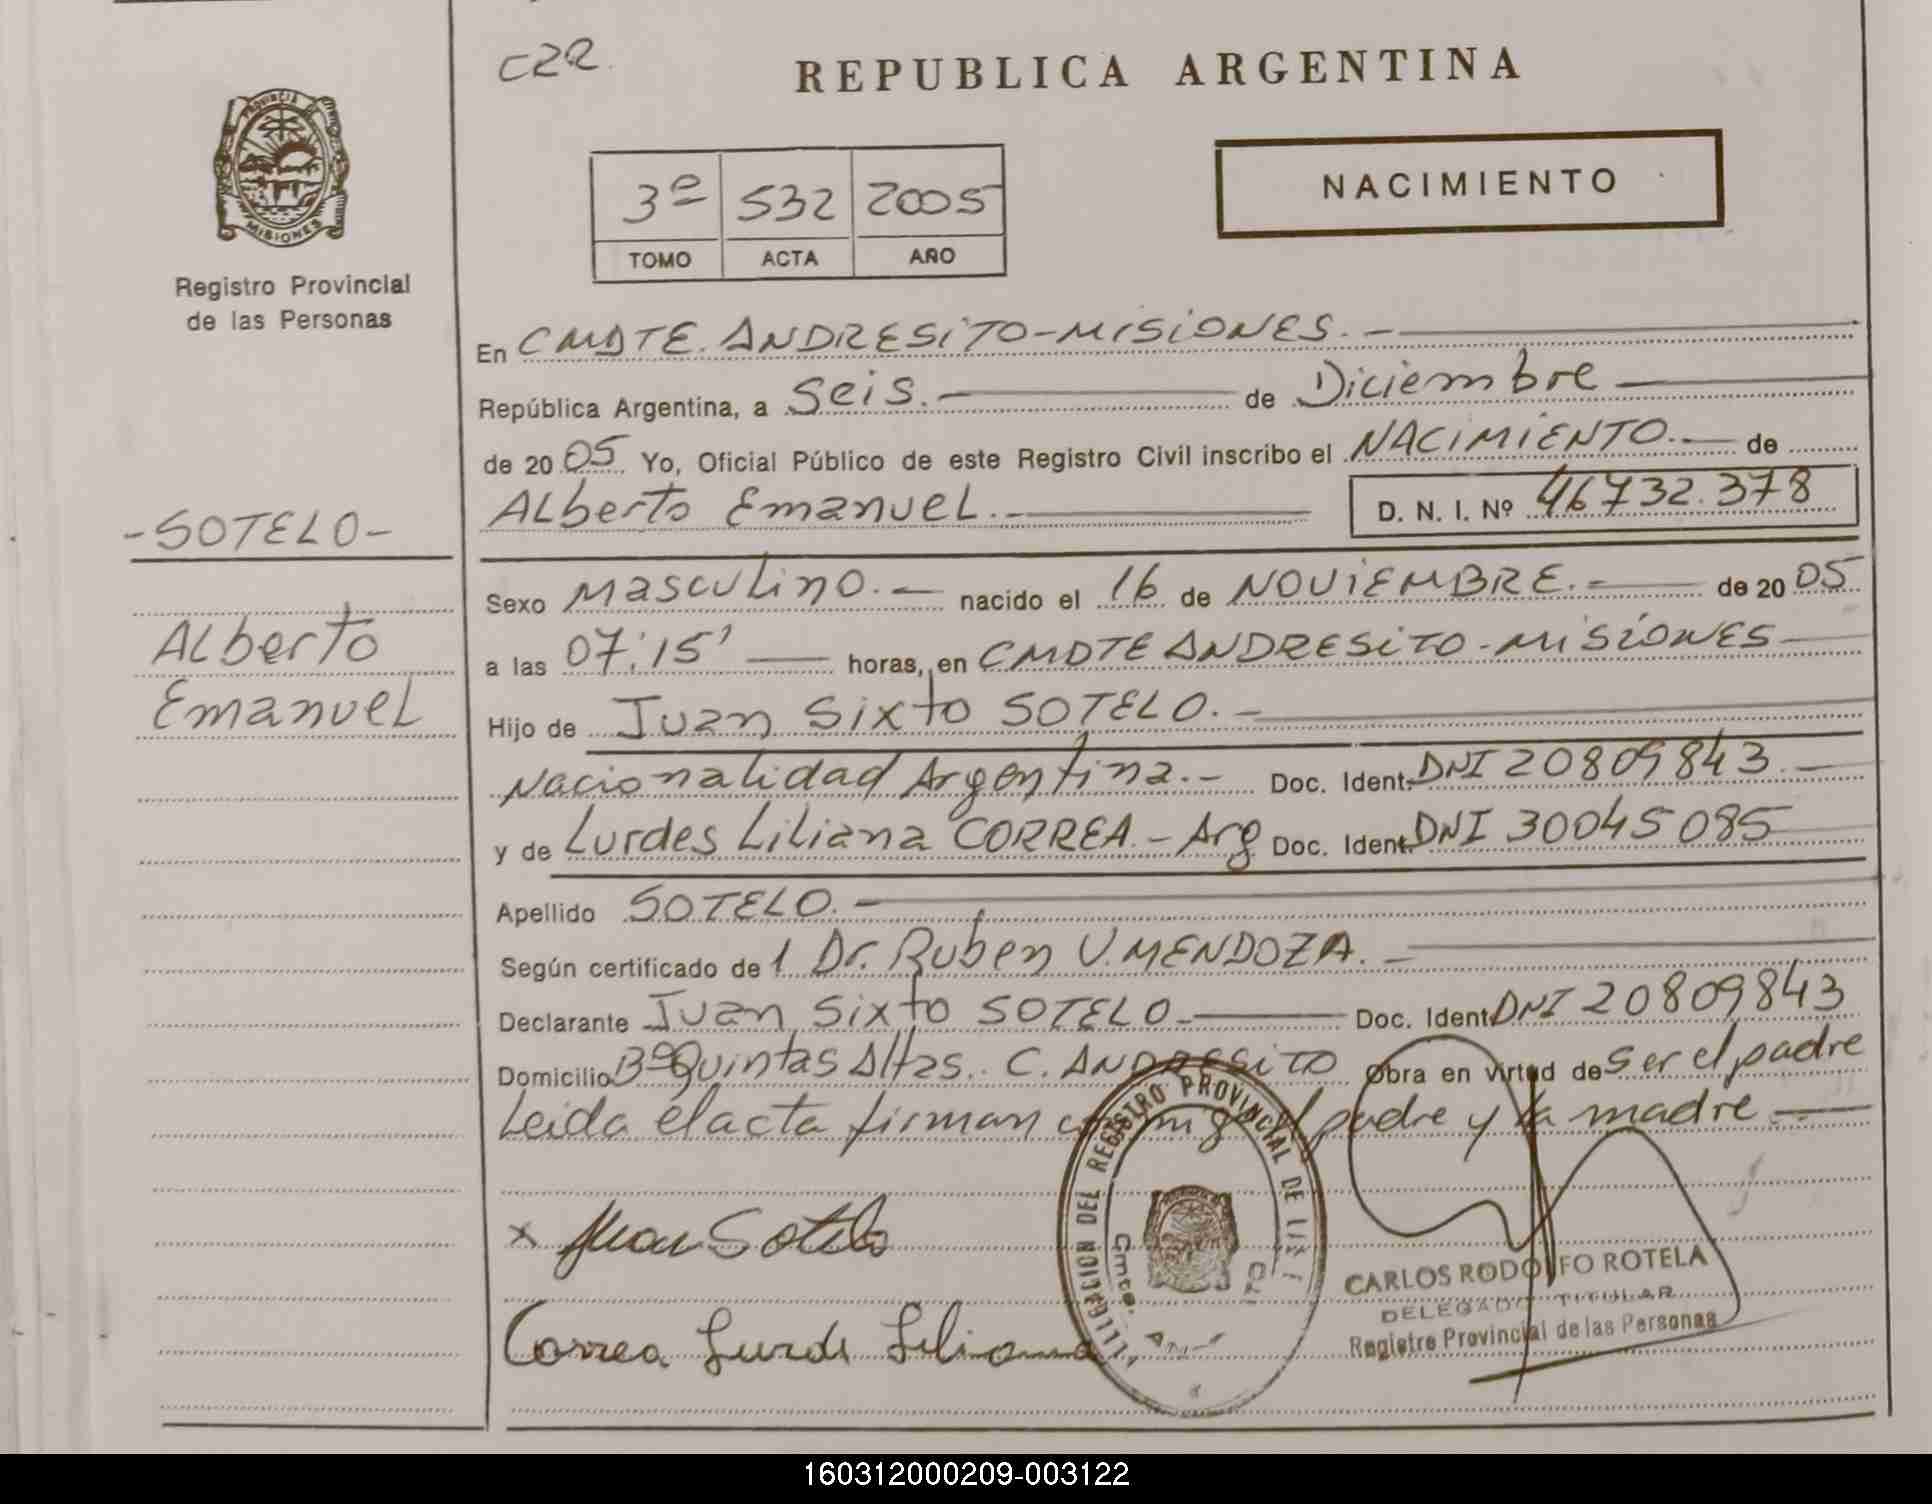 C22.
REPUBLICA ARGENTINA
PROVINCIA DE
MISIONES
Registro Provincial
de las Personas
NACIMIENTO
3º 532 2005
TOMO ACTA AÑO
En CMDTE. ANDRESITO-MISIONES.-
República Argentina, a Seis.- de Diciembre
de 2005 Yo, Oficial Público de este Registro Civil inscribo el NACIMIENTO.- de
Alberto Emanuel.- D. N. I. Nº 46732.378
-SOTELO-
Alberto
Emanuel
Sexo Masculino.- nacido el 16 de NOVIEMBRE.- de 2005
a las 07:15' horas, en CMDTE ANDRESITO-MISIONES
Hijo de Juan Sixto SOTELO.-
Nacionalidad Argentina.- Doc. Ident. DNI 20809843.-
y de Lurdes Liliana CORREA.- Arg Doc. Ident. DNI 30045085
Apellido SOTELO.-
Según certificado de 1 Dr. Ruben V. MENDOZA.-
Declarante Juan Sixto SOTELO.- Doc. Ident. DNI 20809843
Domicilio Bº Quintas Altas. C. ANDRESITO Obra en virtud de Ser el padre
Leida el acta firman conmigo el padre y la madre.-
x Juan Sotelo
Correa Lurde Liliana
DEL REGISTRO PROVINCIAL DE
Cmte.
CARLOS RODOLFO ROTELA
DELEGADO TITULAR
Registro Provincial de las Personas
160312000209-003122